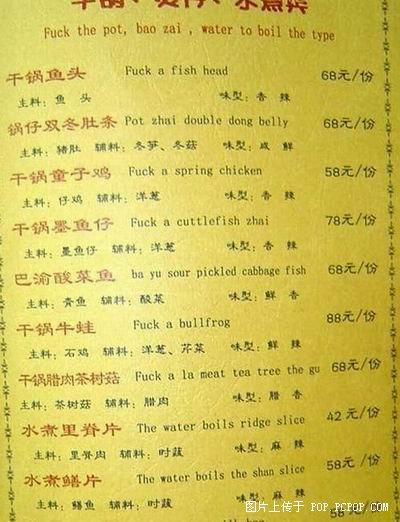 干锅、煲仔、水煮类
Fuck the pot, bao zai , water to boil the type
干锅鱼头 Fuck a fish head 68元/份
主料: 鱼 头 味型: 香 辣
锅仔双冬肚条 Pot zhai double dong belly 68元/份
主料: 猪肚 辅料: 冬笋、冬菇 味型: 咸 鲜
干锅童子鸡 Fuck a spring chicken 58元/份
主料: 仔鸡 辅料: 洋葱 味型: 香 辣
干锅墨鱼仔 Fuck a cuttlefish zhai 78元/份
主料: 墨鱼仔 辅料: 洋葱 味型: 香 辣
巴渝酸菜鱼 ba yu sour pickled cabbage fish 68元/份
主料: 青鱼 辅料: 酸菜 味型: 鲜 香
干锅牛蛙 Fuck a bullfrog 88元/份
主料: 石鸡 辅料: 洋葱、芹菜 味型: 鲜 辣
干锅腊肉茶树菇 Fuck a la meat tea tree the gu 68元/份
主料: 茶树菇 辅料: 腊肉 味型: 腊 香
水煮里脊片 The water boils ridge slice 42元/份
主料: 里脊肉 辅料: 时蔬 味型: 麻 辣
水煮鳝片 The water boils the shan slice 58元/份
主料: 鳝鱼 辅料: 时蔬 味型: 麻 辣
图片上传于 POP.PCPOP.COM